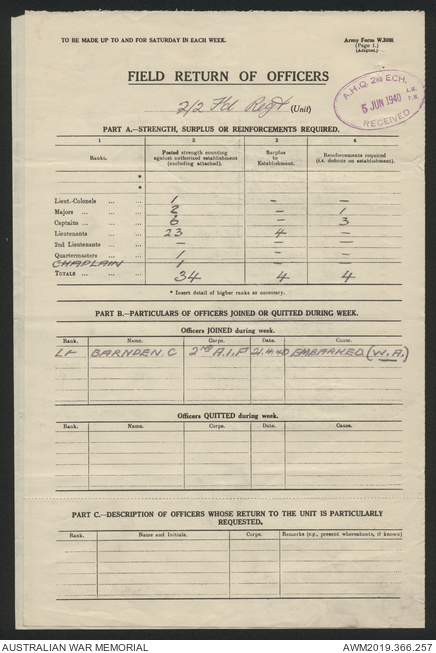 TO BE MADE UP TO AND FOR SATURDAY IN EACH WEEK.
Army Form W.3008.
(Page 1.)
(Adapted.)
FIELD RETURN OF OFFICERS
2/2 Fd Regt (Unit)
A.H.Q. 2nd ECH.
5 JUN 1940 A.M. P.M.
RECEIVED
PART A.—STRENGTH, SURPLUS OR REINFORCEMENTS REQUIRED.
1 2 3 4
Ranks. Posted strength counting against authorized establishment (excluding attached). Surplus to Establishment. Reinforcements required (i.e. deficits on establishment).
*
*
Lieut.-Colonels ... ... 1 — —
Majors ... ... ... 2 — 1
Captains ... ... ... 6 — 3
Lieutenants ... ... 23 4 —
2nd Lieutenants ... ... — — —
Quartermasters ... ... 1 — —
CHAPLAIN 1 — —
TOTALS ... ... ... 34 4 4
* Insert detail of higher ranks as necessary.
PART B.—PARTICULARS OF OFFICERS JOINED OR QUITTED DURING WEEK.
Officers JOINED during week.
Rank. Name. Corps. Date. Cause.
Lt BARNDEN. C 2nd A.I.F. 21.4.40 EMBARKED (W.A.)
Officers QUITTED during week.
Rank. Name. Corps. Date. Cause.
PART C.—DESCRIPTION OF OFFICERS WHOSE RETURN TO THE UNIT IS PARTICULARLY
REQUESTED.
Rank. Name and Initials. Corps. Remarks (e.g., present whereabouts, if known)
AUSTRALIAN WAR MEMORIAL AWM2019.366.257